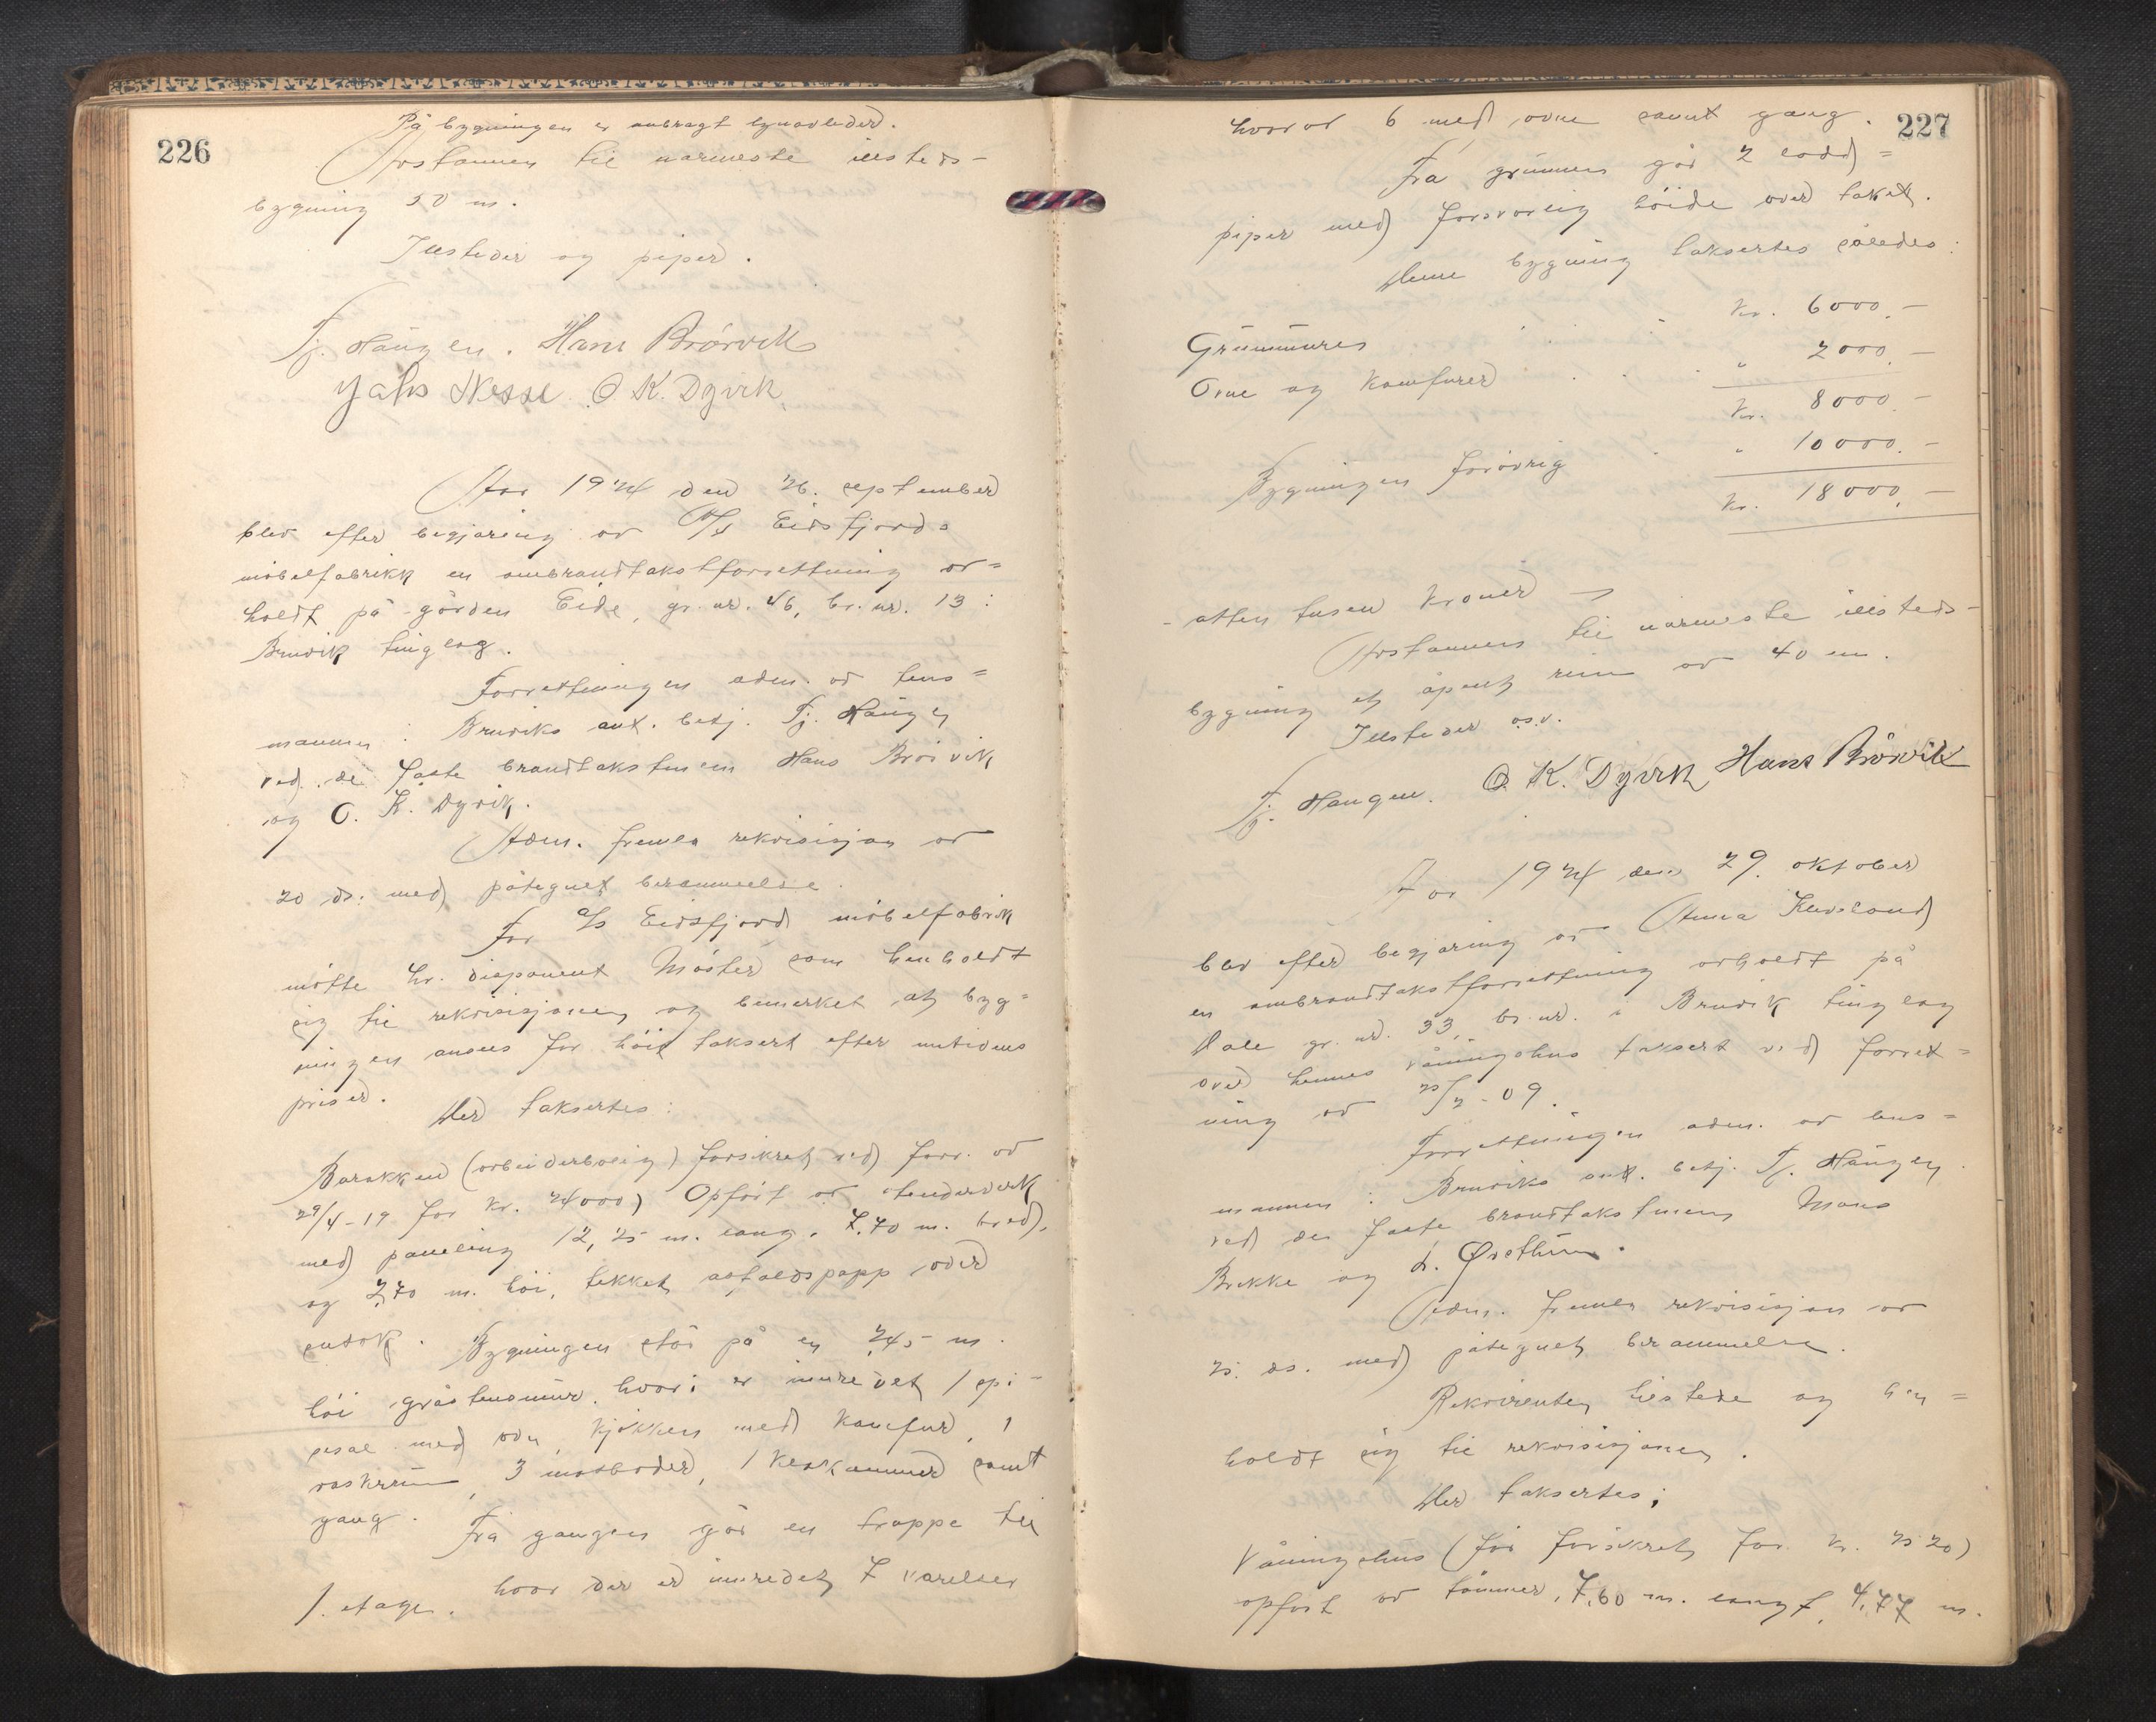 226
På bygningen er anbragt lynavleder.
Avstannen til nærmeste illsteds-
bygning 50 m.
Illsteder og piper.
Tj. Haugen. Hans Brørvik
Jahs Nesse O. K. Dyvik
Aar 1924 den 26. september
blev efter begjæring av A/S Eidsfjords
møbelfabrikk en ombrandtakstforrettning av=
holdt på gården Eide, gr. nr. 46, br. nr. 13 i
Bruvik tinglag.
Forrettningen adm. av lens=
mannen i Bruviks aut. betj. Tj. Haugen
ved de faste brandtakstmenn Hans Brørvik
og O. K. Dyvik.
Adm. fremla rekvisisjon av
20 ds. med påtegnet berammelse.
For A/S Eidsfjord møbelfabrik
møtte hr. disponent Møster som henholdt
sig til rekvisisjonen og bemerket at byg=
ningen ansees for høit taksert efter nutidens
priser.
Der taksertes:
Barakken (arbeiderbolig) forsikret ved forr. av
29/4-19 for kr. 24000) Opført av stenderverk
med paneling 12,25 m. lang, 7,70 m. bred,
og 7,70 m. høi, tekket asfaldspapp over
sutak. Bygningen står på en 2,45 m.
høi gråstensmur, hvori er innredet 1 spi-
sesal med ovn, kjøkken med komfur, 1
vaskrum, 3 matboder, 1 kleskammer samt
gang. Fra gangen går en trappe til
1. etage. hvor der er innredet 7 værelser
227
hvorav 6 med ovne samt gang.
Fra grunnen går 2 lodd=
piper med forsvarlig høide over taket.
Denne bygning taksertes således:
Grunnmuren kr. 6000.-
Ovne og komfurer " 2000.-
kr. 8000.-
Bygningen forøvrig " 10000.-
kr. 18000.-
- atten tusen kroner -
Avstannen til nærmeste illsteds-
bygning et åpent rum av 40 m.
Illsteder o.s.v.
Tj. Haugen. O. K. Dyvik Hans Brørvik
Aar 1924 den 29. oktober
blev efter begjæring av Anna
en ombrandtakstforrettning avholdt på
Dale gr. nr. 33, br. nr. i Bruvik tinglag
over hennes våningshus taksert ved forret=
ning av 25/2-09.
Forrettningen adm. av lens=
mannen i Bruviks aut. betj. Tj. Haugen
ved de faste brandtakstmenn Mons
Brekke og
Adm. fremla rekvisisjon av
25. ds. med påtegnet berammelse.
Rekvirenten tilstede og hen=
holdt sig til rekvisisjonen.
Der taksertes;
Våningshus (før forsikret for kr. 2520)
opført av tømmer, 7,60 m. langt, 4,77 m.